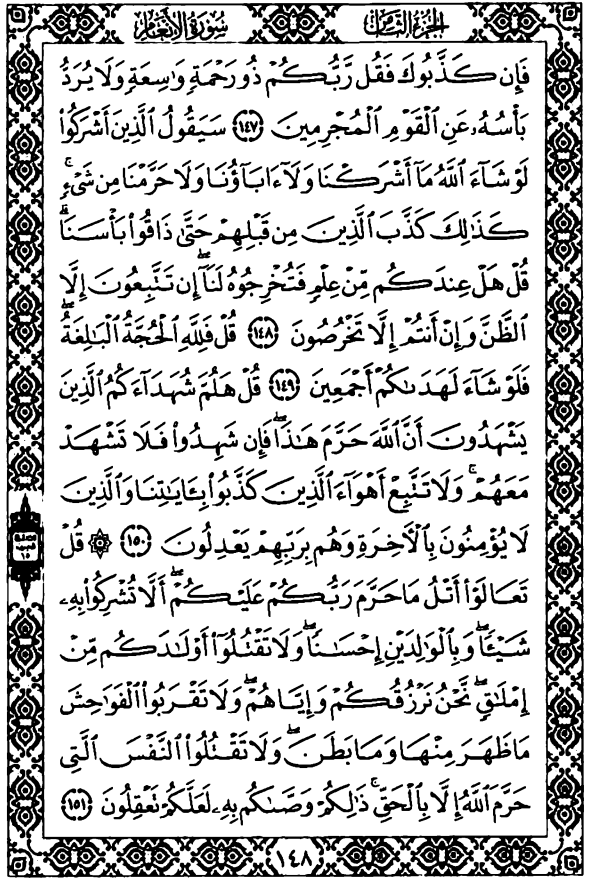 الجزء الثامن سورة الأنعام
فَإِن كَذَّبُوكَ فَقُل رَّبُّكُمْ ذُو رَحْمَةٍ وَٰسِعَةٍ وَلَا يُرَدُّ
بَأْسُهُۥ عَنِ ٱلْقَوْمِ ٱلْمُجْرِمِينَ ١٤٧ سَيَقُولُ ٱلَّذِينَ أَشْرَكُوا۟
لَوْ شَآءَ ٱللَّهُ مَآ أَشْرَكْنَا وَلَآ ءَابَآؤُنَا وَلَا حَرَّمْنَا مِن شَىْءٍۚ
كَذَٰلِكَ كَذَّبَ ٱلَّذِينَ مِن قَبْلِهِمْ حَتَّىٰ ذَاقُوا۟ بَأْسَنَاۗ
قُلْ هَلْ عِندَكُم مِّنْ عِلْمٍ فَتُخْرِجُوهُ لَنَآۖ إِن تَتَّبِعُونَ إِلَّا
ٱلظَّنَّ وَإِنْ أَنتُمْ إِلَّا تَخْرُصُونَ ١٤٨ قُلْ فَلِلَّهِ ٱلْحُجَّةُ ٱلْبَٰلِغَةُۖ
فَلَوْ شَآءَ لَهَدَىٰكُمْ أَجْمَعِينَ ١٤٩ قُلْ هَلُمَّ شُهَدَآءَكُمُ ٱلَّذِينَ
يَشْهَدُونَ أَنَّ ٱللَّهَ حَرَّمَ هَٰذَاۖ فَإِن شَهِدُوا۟ فَلَا تَشْهَدْ
مَعَهُمْۚ وَلَا تَتَّبِعْ أَهْوَآءَ ٱلَّذِينَ كَذَّبُوا۟ بِـَٔايَٰتِنَا وَٱلَّذِينَ
لَا يُؤْمِنُونَ بِٱلْـَٔاخِرَةِ وَهُم بِرَبِّهِمْ يَعْدِلُونَ ١٥٠ ۞ قُلْ
تَعَالَوْا۟ أَتْلُ مَا حَرَّمَ رَبُّكُمْ عَلَيْكُمْۖ أَلَّا تُشْرِكُوا۟ بِهِۦ
شَيْـًٔاۖ وَبِٱلْوَٰلِدَيْنِ إِحْسَٰنًاۖ وَلَا تَقْتُلُوٓا۟ أَوْلَٰدَكُم مِّنْ
إِمْلَٰقٍۖ نَّحْنُ نَرْزُقُكُمْ وَإِيَّاهُمْۖ وَلَا تَقْرَبُوا۟ ٱلْفَوَٰحِشَ
مَا ظَهَرَ مِنْهَا وَمَا بَطَنَۖ وَلَا تَقْتُلُوا۟ ٱلنَّفْسَ ٱلَّتِى
حَرَّمَ ٱللَّهُ إِلَّا بِٱلْحَقِّۚ ذَٰلِكُمْ وَصَّىٰكُم بِهِۦ لَعَلَّكُمْ تَعْقِلُونَ ١٥١
١٤٨